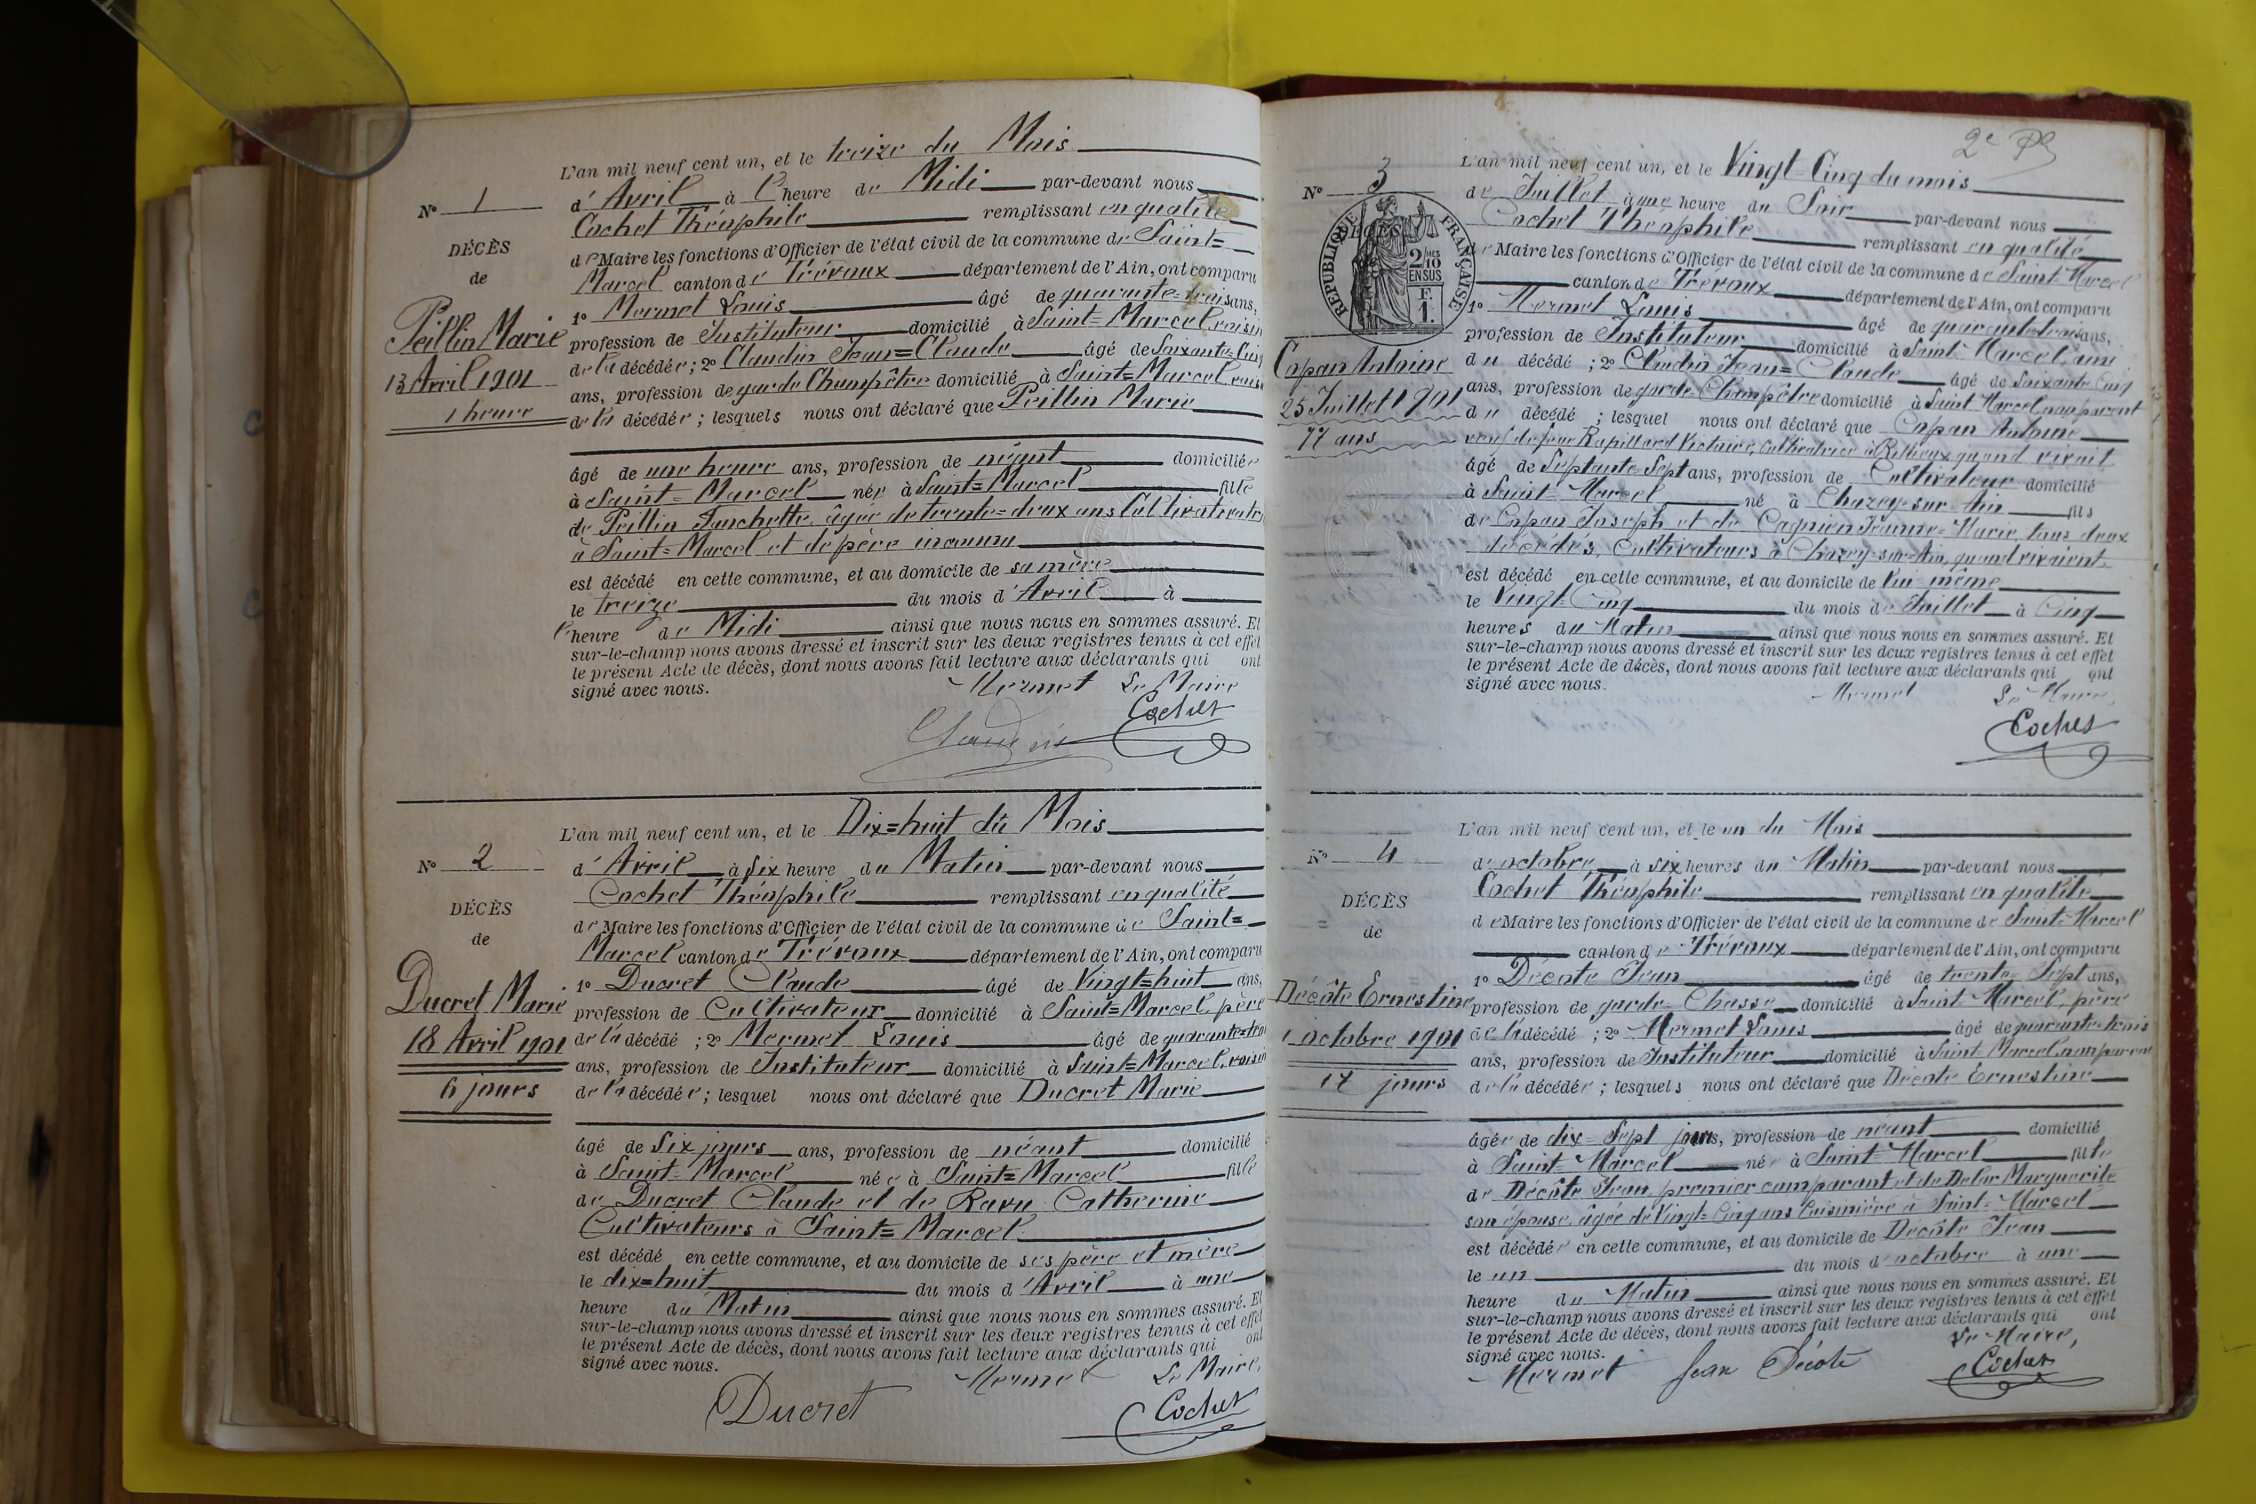 L'an mil neuf cent un, et le treize du Mois
N° 1
d'Avril à l'heure de Midi par-devant nous
Cochet Théophile remplissant en qualité
DÉCÈS
de Maire les fonctions d'Officier de l'état civil de la commune de Saint=
de
Marcel canton de Trévoux département de l'Ain, ont comparu
1° Mermet Louis âgé de quarante=trois ans,
Peillin Marie
profession de Instituteur domicilié à Saint=Marcel, voisin
13 Avril 1901
de la décédée ; 2° Claudin Jean=Claude âgé de Soixante-Cinq
1 heure
ans, profession de garde Champêtre domicilié à Saint=Marcel, voisin
de la décédée ; lesquels nous ont déclaré que Peillin Marie
âgé de une heure ans, profession de néant domiciliée
à Saint=Marcel née à Saint=Marcel fille
de Peillin Fanchette âgée de trente=deux ans Cultivatrice
à Saint=Marcel et de père inconnu
est décédé en cette commune, et au domicile de sa mère
le treize du mois d'Avril à
l'heure de Midi ainsi que nous nous en sommes assuré. Et
sur-le-champ nous avons dressé et inscrit sur les deux registres tenus à cet effet
le présent Acte de décès, dont nous avons fait lecture aux déclarants qui ont
signé avec nous.
Mermet Le Maire
Claudin Cochet
L'an mil neuf cent un, et le Dix=huit du Mois
N° 2
d'Avril à Six heure du Matin par-devant nous
Cochet Théophile remplissant en qualité
DÉCÈS
de Maire les fonctions d'Officier de l'état civil de la commune de Saint=
de
Marcel canton de Trévoux département de l'Ain, ont comparu
1° Ducret Claude âgé de Vingt=huit ans,
Ducret Marie
profession de Cultivateur domicilié à Saint=Marcel, père
18 Avril 1901
de la décédé ; 2° Mermet Louis âgé de quarante=trois
ans, profession de Instituteur domicilié à Saint=Marcel, voisin
6 jours
de la décédée ; lesquel nous ont déclaré que Ducret Marie
âgé de Six jours ans, profession de néant domicilié
à Saint=Marcel née à Saint=Marcel fille
de Ducret Claude et de Ravu Catherine
Cultivateurs à Saint=Marcel
est décédé en cette commune, et au domicile de ses père et mère
le dix=huit du mois d'Avril à une
heure du Matin ainsi que nous nous en sommes assuré. Et
sur-le-champ nous avons dressé et inscrit sur les deux registres tenus à cet effet
le présent Acte de décès, dont nous avons fait lecture aux déclarants qui ont
signé avec nous.
Mermet Le Maire,
Ducret Cochet
2e
L'an mil neuf cent un, et le Vingt=Cinq du mois
N° 3
de Juillet à une heure du Soir par-devant nous
Cochet Théophile remplissant en qualité
RÉPUBLIQUE FRANÇAISE
2/10 EN SUS
F. 1.
de Maire les fonctions d'Officier de l'état civil de la commune de Saint=Marcel
canton de Trévoux département de l'Ain, ont comparu
1° Mermet Louis âgé de quarante=trois ans,
profession de Instituteur domicilié à Saint=Marcel, ami
Capan Antoine
du décédé ; 2° Claudin Jean=Claude âgé de Soixante Cinq
25 Juillet 1901
ans, profession de garde=Champêtre domicilié à Saint Marcel non parent
du décédé ; lesquel nous ont déclaré que Capan Antoine
77 ans
veuf de feue Rapillard Victoire, Cultivatrice à Rillieux quand vivait
âgé de Septante=Sept ans, profession de Cultivateur domicilié
à Saint=Marcel né à Chazey-sur-Ain fils
de Capan Joseph et de Cagnien Jeanne=Marie, tous deux
décédés, Cultivateurs à Chazey-sur-Ain, quand vivaient
est décédé en cette commune, et au domicile de lui=même
le Vingt=Cinq du mois de Juillet à Cinq
heures du Matin ainsi que nous nous en sommes assuré. Et
sur-le-champ nous avons dressé et inscrit sur les deux registres tenus à cet effet
le présent Acte de décès, dont nous avons fait lecture aux déclarants qui ont
signé avec nous.
Mermet Le Maire,
Cochet
L'an mil neuf cent un, et le un du Mois
N° 4
d'octobre, à six heures du Matin par-devant nous
Cochet Théophile remplissant en qualité
DÉCÈS
de Maire les fonctions d'Officier de l'état civil de la commune de Saint=Marcel
de
canton de Trévoux département de l'Ain, ont comparu
1° Décôte Jean âgé de trente=Sept ans,
Décôte Ernestine
profession de garde=Chasse domicilié à Saint=Marcel, père
1 octobre 1901
de la décédé ; 2° Mermet Louis âgé de quarante=trois
ans, profession de Instituteur domicilié à Saint Marcel, non parent
17 jours
de la décédée ; lesquels nous ont déclaré que Décôte Ernestine
âgée de dix=Sept jours, profession de néant domicilié
à Saint=Marcel née à Saint=Marcel fille
de Décôte Jean premier comparant et de Delor Marguerite
son épouse, âgée de Vingt=Cinq ans Cuisinière à Saint=Marcel
est décédée en cette commune, et au domicile de Décôte Jean
le un du mois d'octobre à une
heure du Matin ainsi que nous nous en sommes assuré. Et
sur-le-champ nous avons dressé et inscrit sur les deux registres tenus à cet effet
le présent Acte de décès, dont nous avons fait lecture aux déclarants qui ont
signé avec nous.
Le Maire,
Mermet Jean Décote Cochet